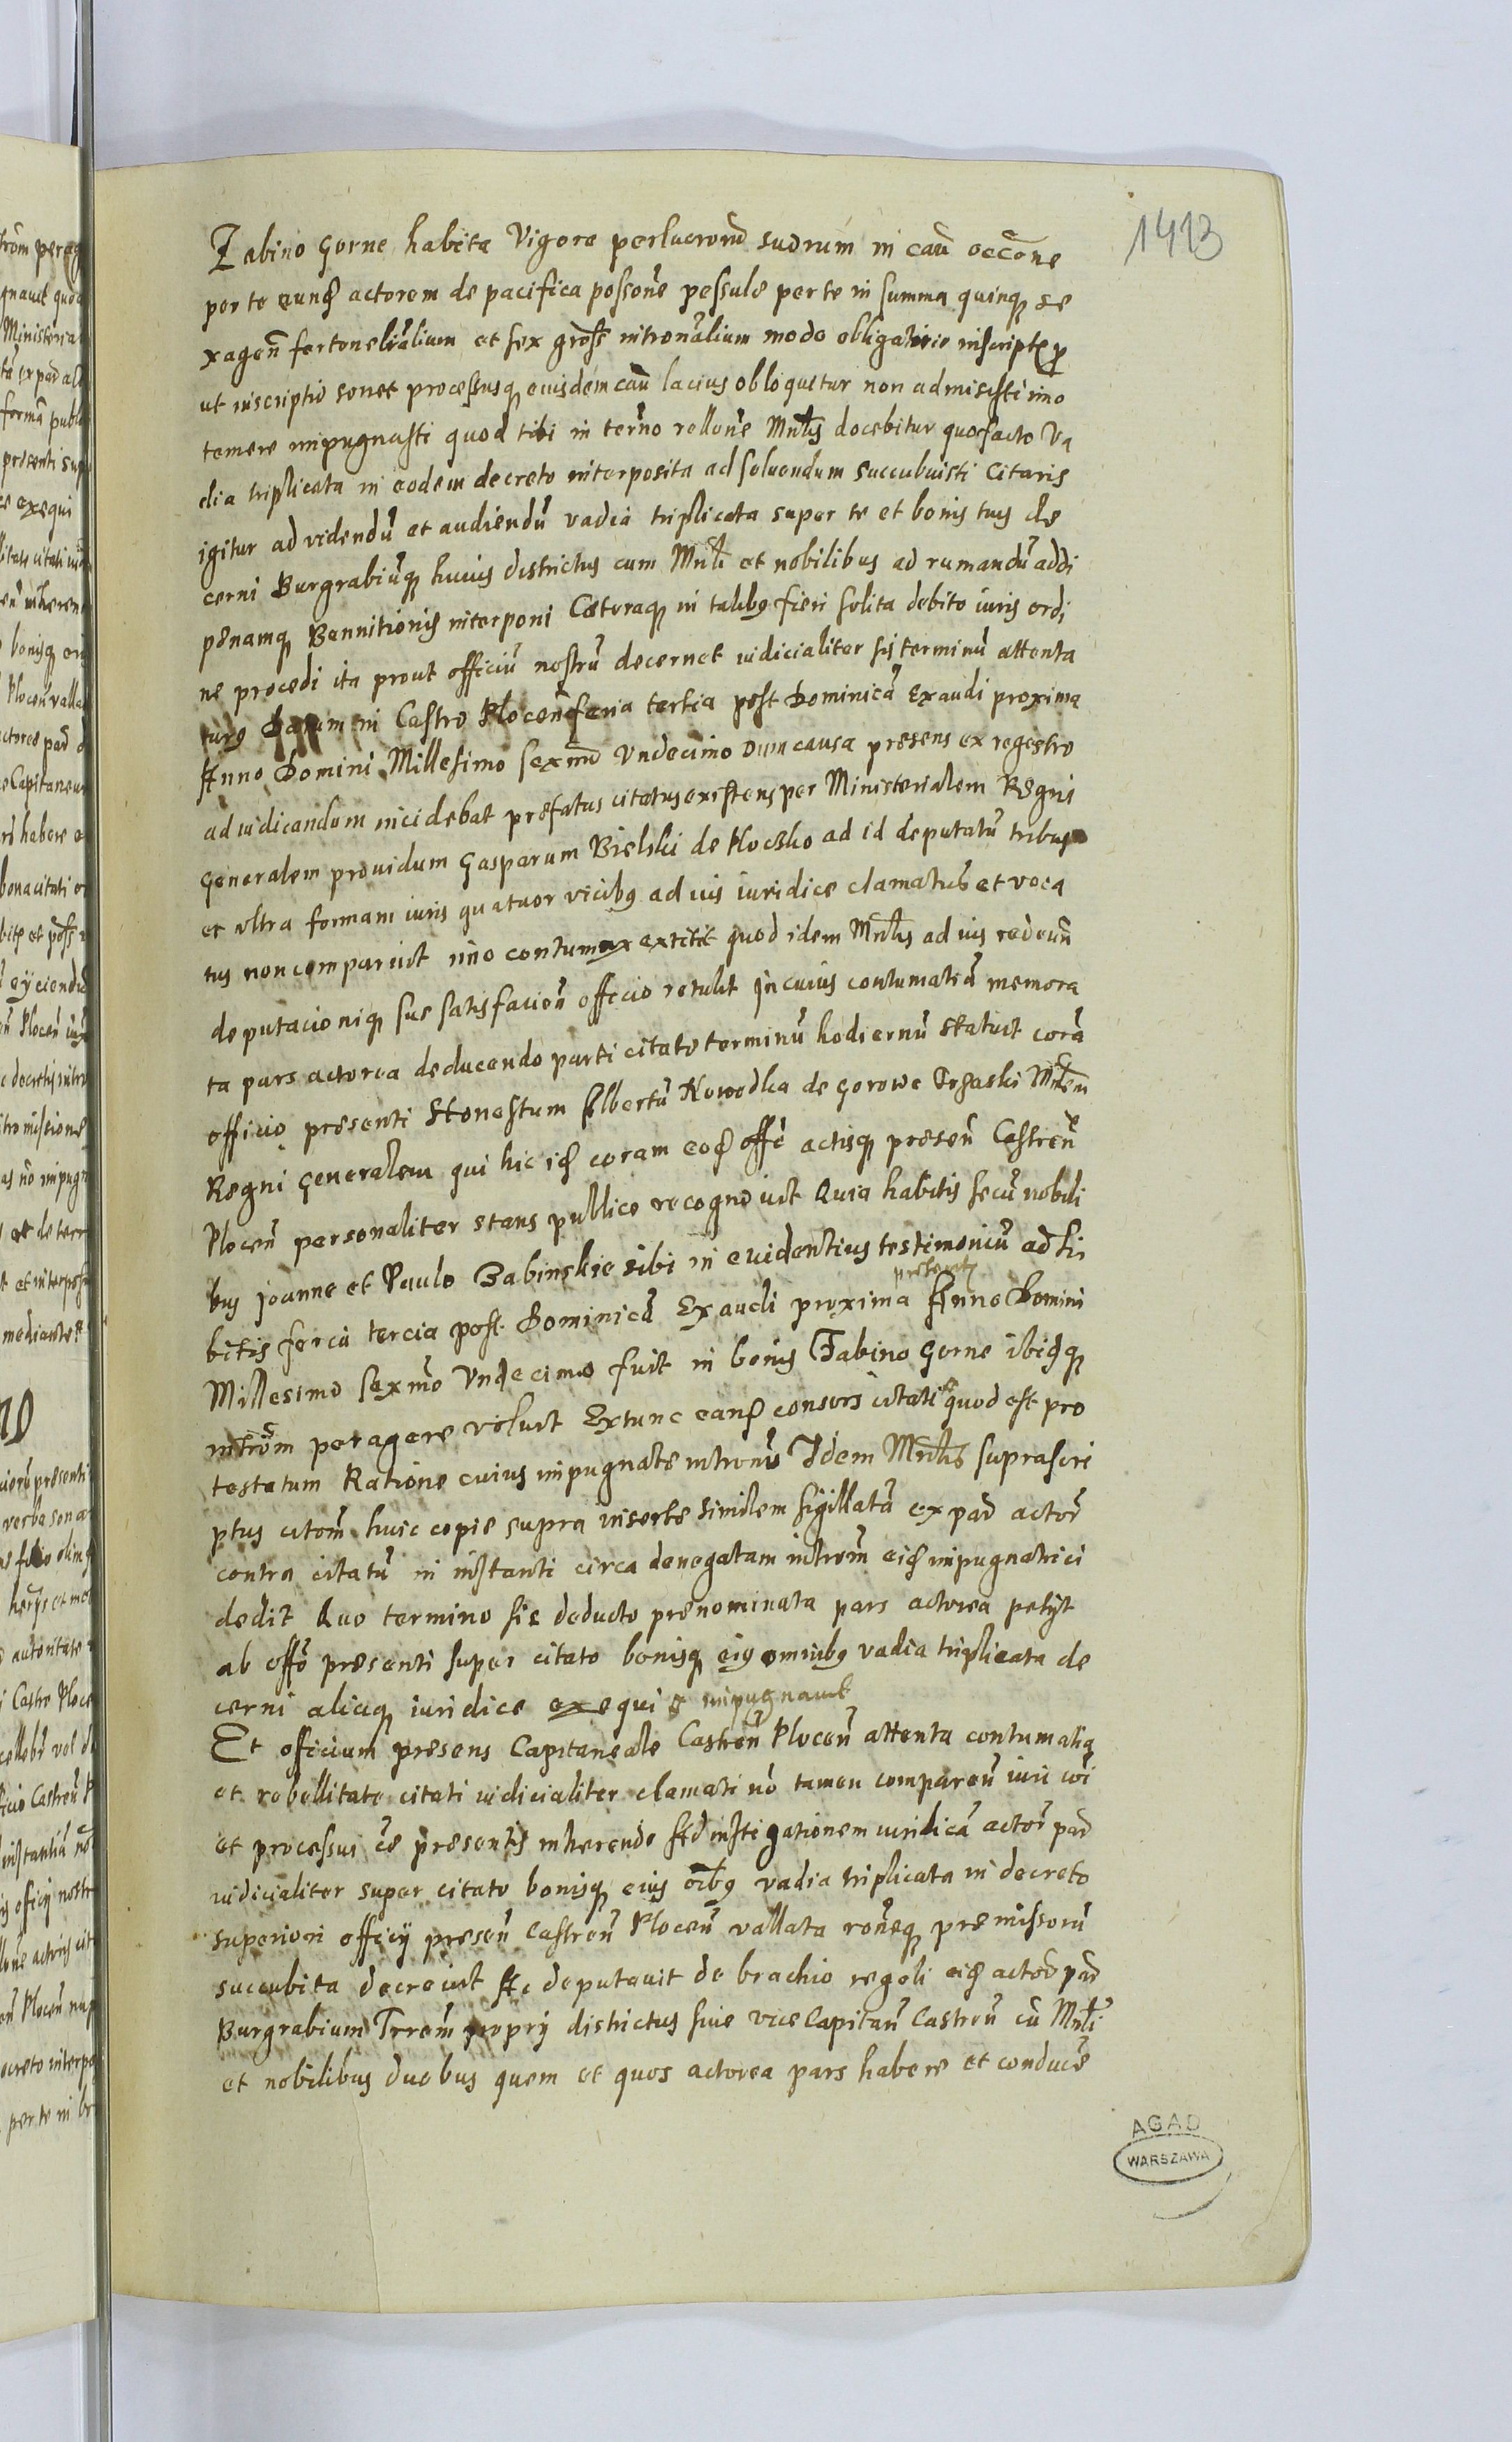 1413
Zabino Gorne habita Vigore perlucrorũ suorum in cau͠ occ͠one
per te eund actorem de pacifica possone͠ pessule per te in summa quinq se
xagen͠ fertonel͠ialium et sex gross nitronalium modo obligatorio inscripte pro
ut inscriptio sonet processusq euisdem cau͠ lacius obloquitur non admisisti imo
temere impugnasti quod tibi in term͠o rellone͠ Mnl͠is docebitur quo facto Va
dia triplicata in eodem decreto interposita ad soluendum succubuisti Citaris
igitur ad videndu͠ et audiendu͠ vadia triplicata super te et bonis tuis de
cerni Burgrabiu͠q huius districtus cum Mnl͠i et nobilibus ad rumandu͠ addi
penamq Bannitionis interponi Caeteraq in talibq fieri solita debito iuris ordi
ne procedi ita prout officiu͠ nostru͠ decernet iudicialiter sis terminu͠ attenta
turq Datum in Castro Plocen͠ feria tertia post Dominica͠ Exaudi proxima
Anno Domini Millesimo sexm͠o Vndecimo Dum causa presens ex regestro
ad iudicandum incidebat prefatus citatus existens per Ministerialem Regni
Generalem prouidum Gasparum Bielski de Plocsko ad id deputatu͠ tribus
et vltra formam iuris quatuor vicibq ad ius iuridice clamatus et voca
tus non comparuit im͠o contumax extitit quod idem Mnl͠is ad ius redeun͠
deputacioniq sue satisfacien͠ officio retulit In cuius contumatia͠ memora
ta pars actorea deducendo parti citate terminu͠ hodiernu͠ statuit cora͠
officio presenti Honestum Albertu͠ Kowodka de Gorowe Trzaski Mnl͠em
Regni Generalem qui hic id coram eod off͠o actisq presen͠ Castren͠
Plocen͠ personaliter stans publice recognouit Quia habitis secu͠ nobili
bus Joanne et Paulo Zabinskie sibi in euidentius testimoniu͠ adhi
bitis feria tercia post Dominica͠ Exaudi proxima presenti Anno Domini
Millesimo sexm͠o Vndecimo fuit in bonis Zabino Gorne ibidq
intro͠m peragere voluit Extunc eand consors citati quod est pro
testatum Ratione cuius impugnate intron͠is Idem Mnl͠is suprascri
ptus citom͠ huic copie supra inserte similem sigillata͠ ex par͠ actor͠
contra citatu͠ in instanti circa denegatam introm͠ eid impugnatrici
dedit Quo termino sic deducto prenominata pars actorea petyt
ab off͠o presenti super citato bonisq eiq omnibq vadia triplicata de
cerni aliaq iuridice exequi & impugnauit
Et officium presens Capitaneale Castren͠ Plocen͠ attenta contumatia
et rebellitate citati iudicialiter clamati no͠ tamen comparen͠ iuri coi͠
et processui ce͠ presentis inherendo ad instigationem iuridica͠ actor͠ par͠
iudicialiter super citato bonisq eius oi͠bq vadia triplicata in decreto
superiori officij presen͠ Castren͠ Plocen͠ vallata rone͠q premissoru͠
succubita decreuit Ac deputauit de brachio regali eid actor͠ par͠
Burgrabium Trrem͠ proprij districtus siue vice Capitan͠ Castren͠ cu͠ Mnl͠i
et nobilibus duobus quem et quos actorea pars habere et conduce͠
AGAD
WARSZAWA